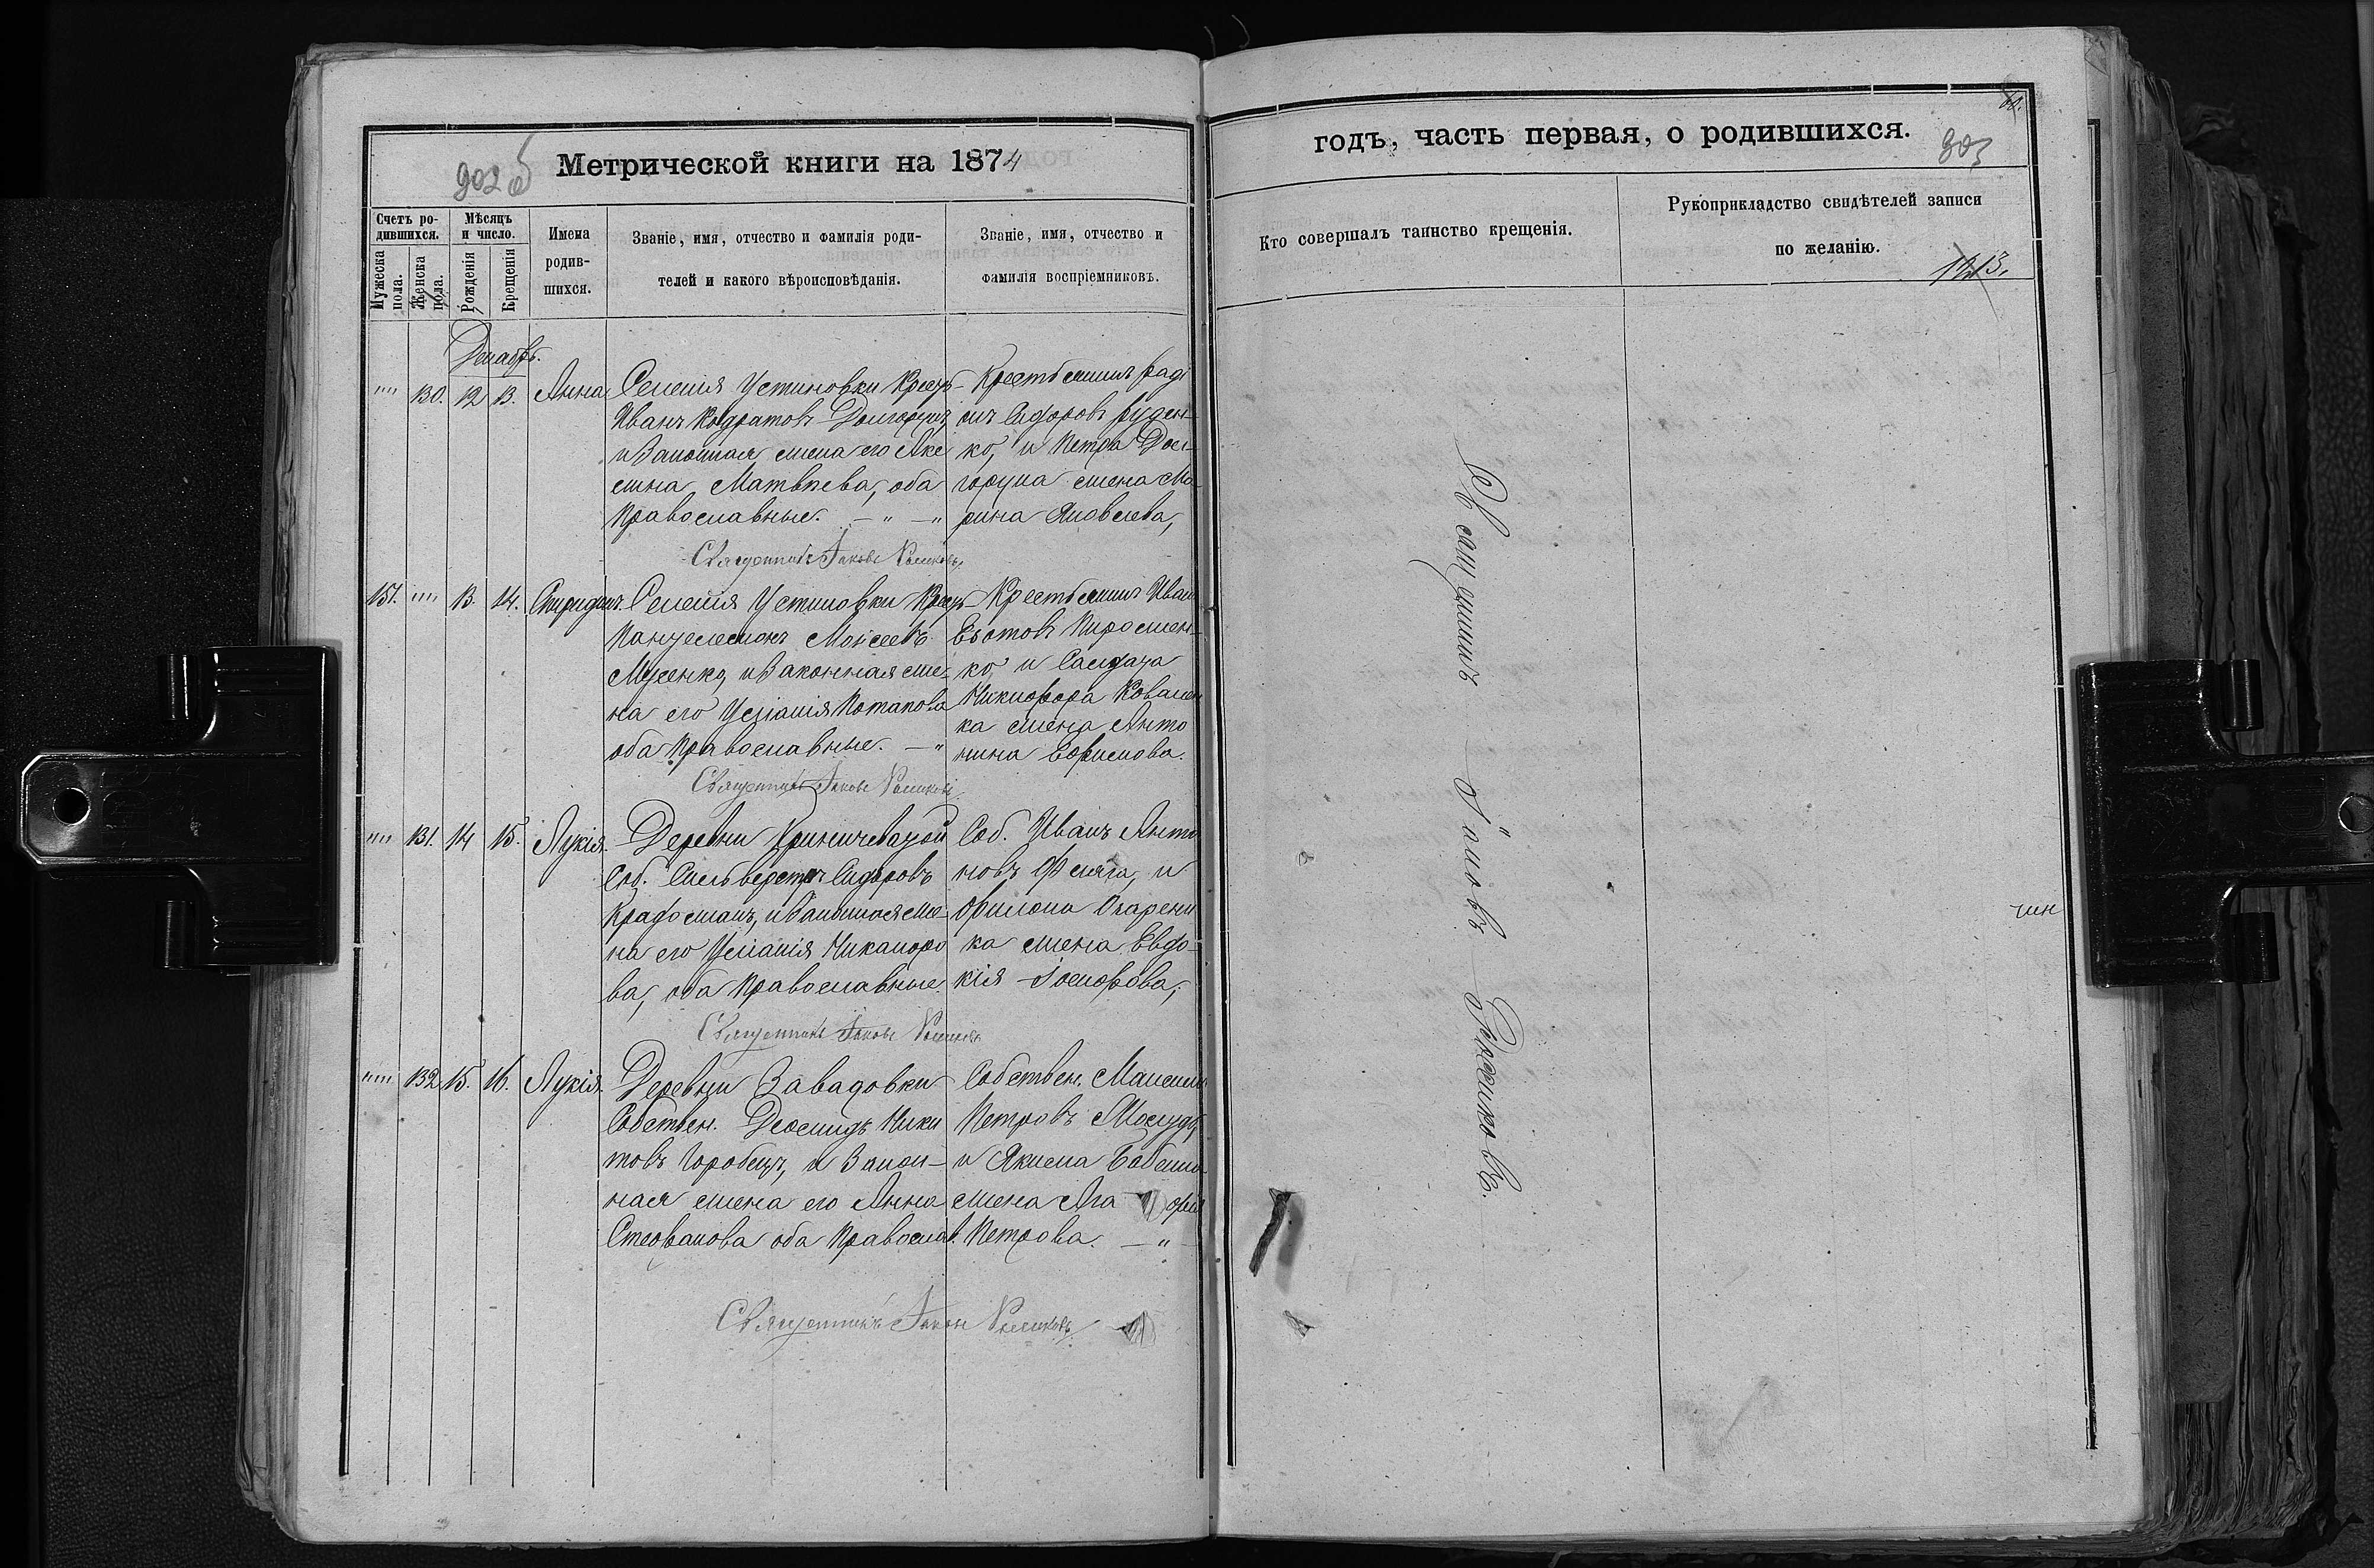 Метрической книги на 1874
902 б
Счетъ ро-
дившихся.
Мужеска пола.
Женска пола.
Мѣсяцъ
и число.
Рожденія
Крещенія
Имена
родив-
шихся.
Званіе, имя, отчество и фамилія роди-
телей и какого вѣроисповѣданія.
Званіе, имя, отчество и
фамилія воспріемниковъ.
Декабрь.
"" 130. 12 13. Анна
Селенія Устиновки Крест
Иванъ Кодратовъ
и Законная жена его Аке
сина Матвѣева, оба
Православные. — " — "
Крестьянинъ Раді
онъ Сидоровъ Руден-
ко, и Петра Дол-
горука жена Ма-
рина Яковлева,
Священникъ Іаковъ
151. "" 13. 14. Спиридонъ.
Селенія Устиновки Крест
Панцелемонъ Моисеевъ
и Законная же-
на его Уліанія Потапова
оба Православные. — "
Крестьянинъ Иван
ко, и Салдата
Никифора Ковален
ка жена Анто
нина Ефимова.
Священникъ Іаковъ
"" 131. 14 15. Лукія.
Деревни Криничеватой
Соб. Сильверстръ Сидоровъ
и Законная же-
на его Уліанія Никаноро
ва, оба Православные.
Соб. Иванъ Анто
новъ и
ка жена Евдо-
кія Іосифова,
Священникъ Іаковъ
"" 132 15. 16. Лукія.
Деревни Завадовки
Собствен. Діомидъ Ники
товъ Горобецъ, и Закон-
ная жена его Анна
Стефанова оба Православ.
Собствен. Максим
Петровъ
и Якима
жена Ага фія
Петрова. — "
Священникъ Іаковъ
годъ, часть первая, о родившихся.
903
Кто совершалъ таинство крещенія.
Рукоприкладство свидѣтелей записи
по желанію.
1213.
Священникъ Іаковъ